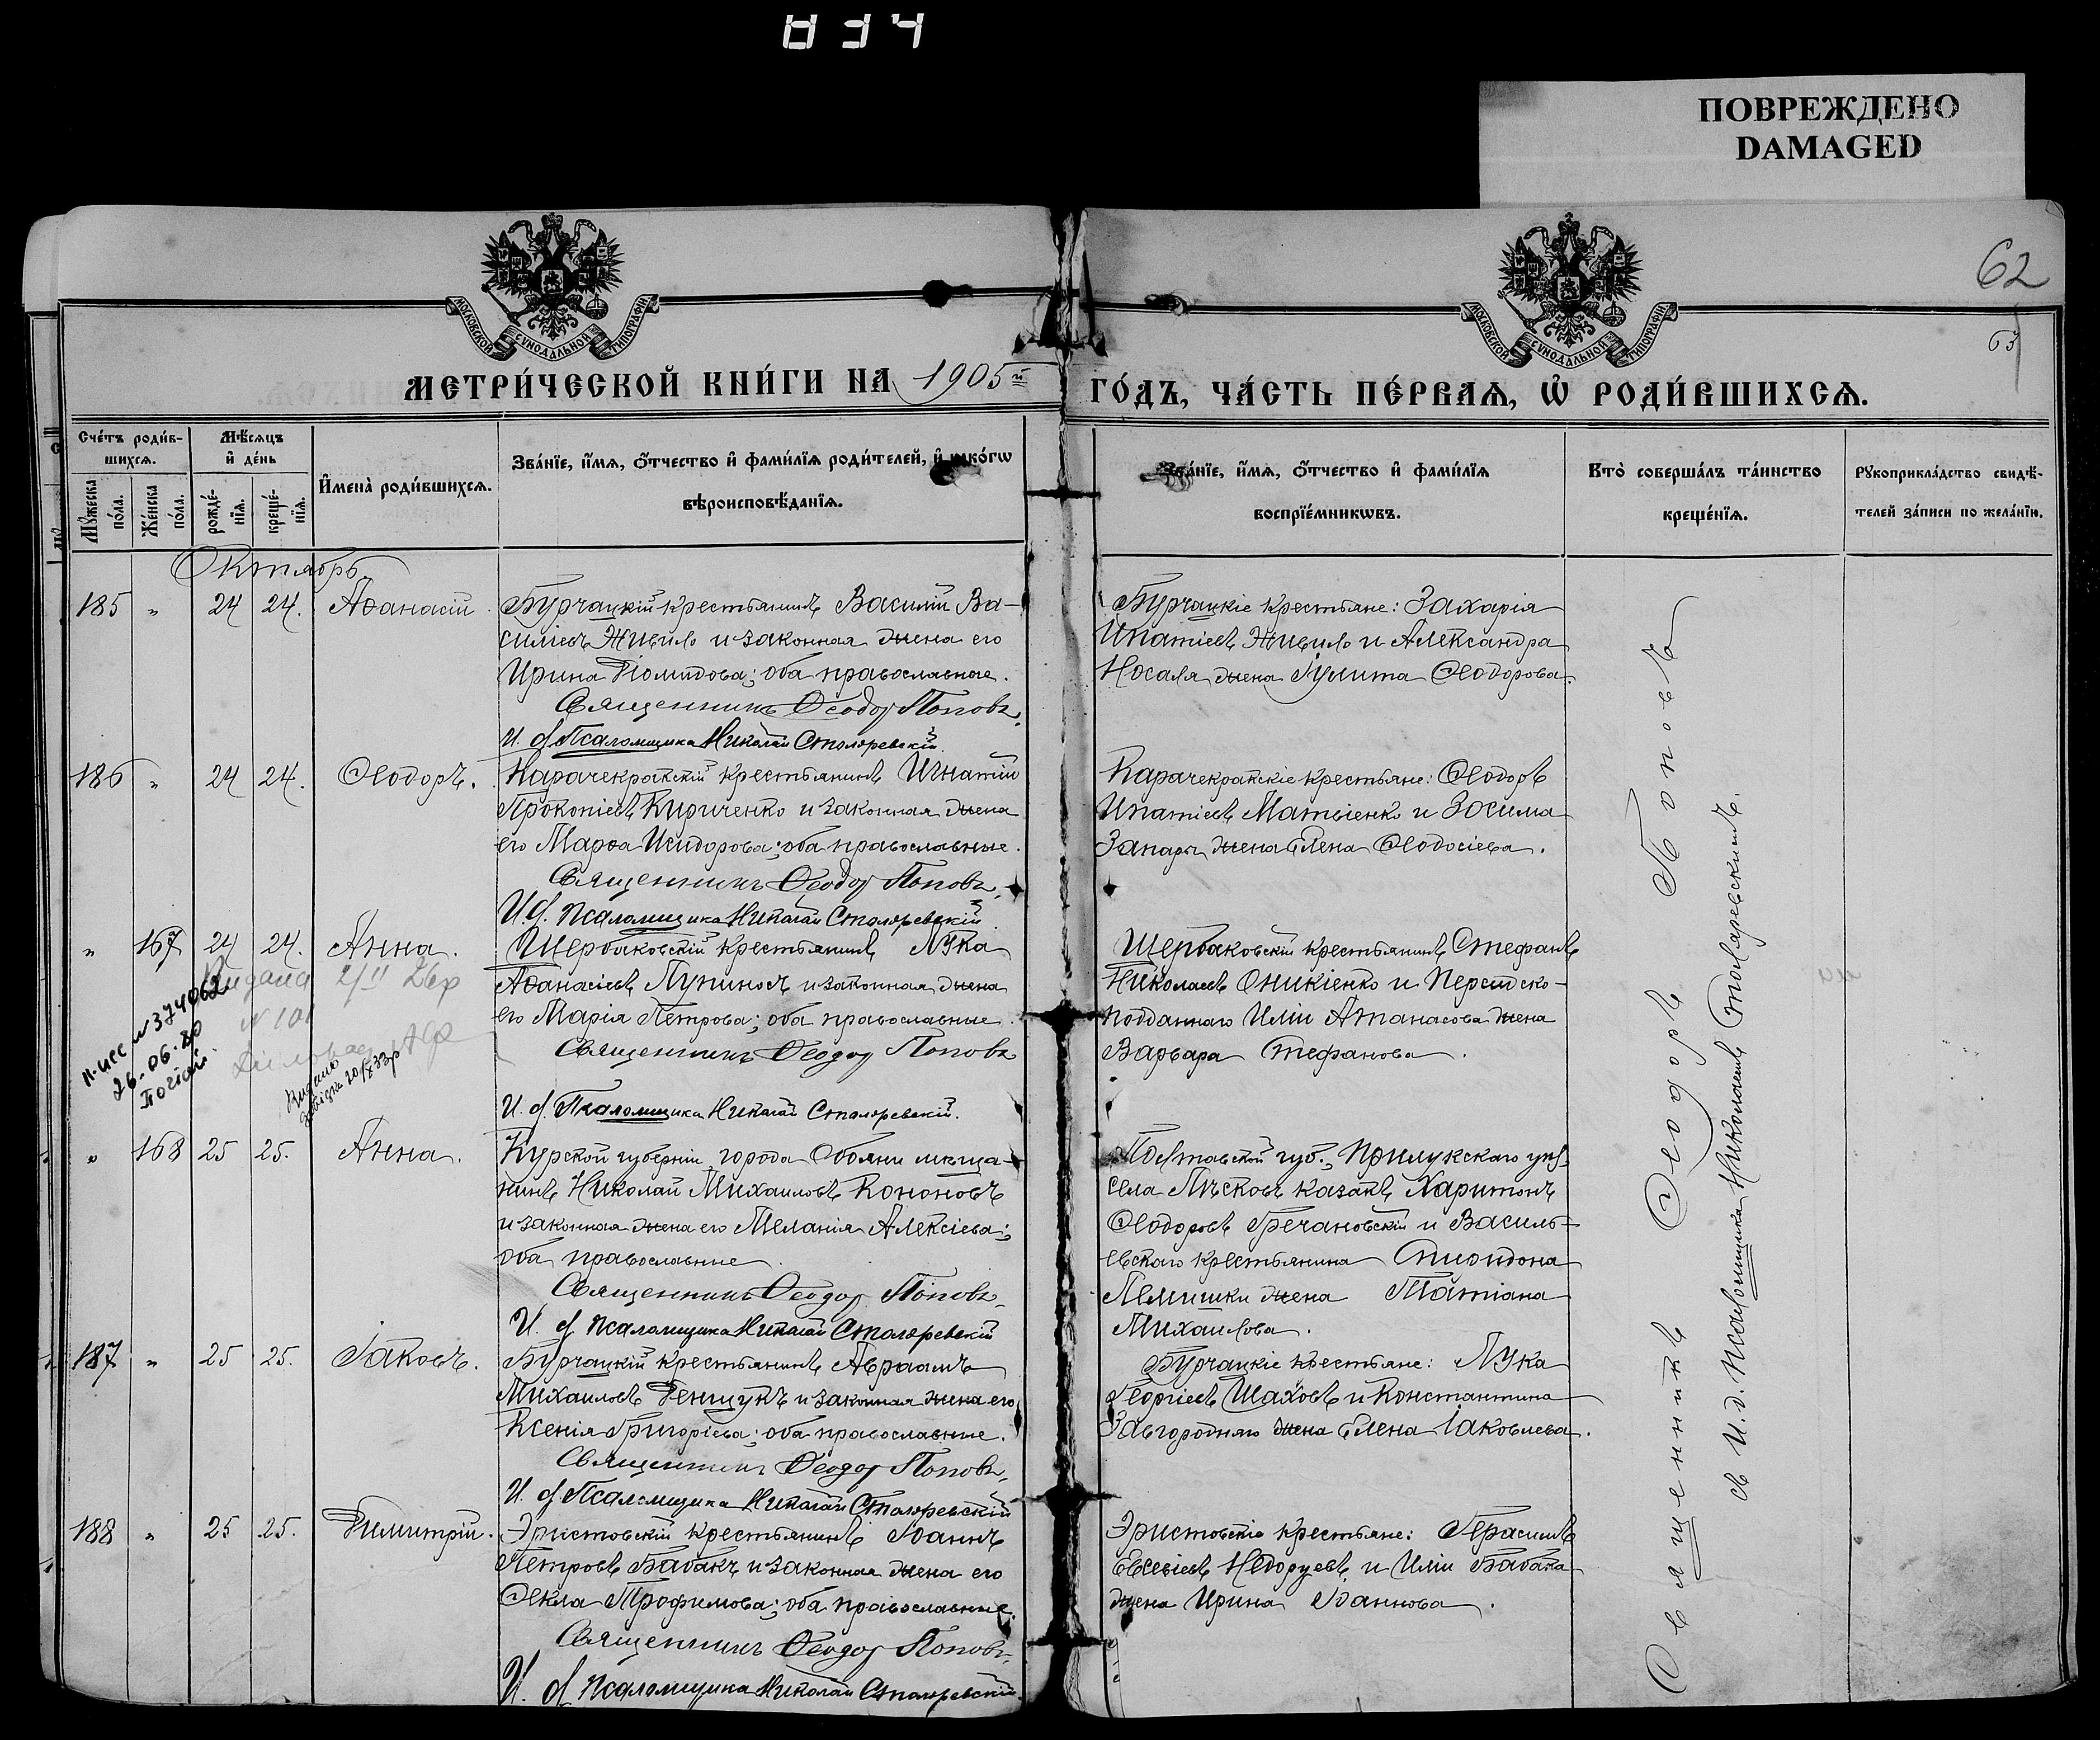 834
ПОВРЕЖДЕНО
DAMAGED
62
63
МОСКОВСКОЙ СѴНОДАЛЬНОЙ ТИПОГРАФІИ
МОСКОВСКОЙ СѴНОДАЛЬНОЙ ТИПОГРАФІИ
МЕТРИ́ЧЕСКОЙ КНИ́ГИ НА 1905й ГО́ДЪ, ЧА́СТЬ ПЕ́РВАѦ, Ѡ҆ РОДИ́ВШИХСѦ.
Сче́тъ роди́в-
шихсѧ.
Мѣ́сѧцъ
и҆ де́нь
И҆мена̀ роди́вшихсѧ.
Зва́нїе, и҆́мѧ, ѻ҆́тчество и҆ фами́лїѧ роди́телей, и҆ како́гѡ
вѣроисповѣ́данїѧ.
Зва́нїе, и҆́мѧ, ѻ҆́тчество и҆ фами́лїѧ
воспрїе́мникѡвъ.
Кто̀ соверша́лъ та́инство
креще́нїѧ.
Рꙋкоприкла́дство свидѣ́-
телей за́писи по жела́нїю.
Мꙋ́жеска по́ла.
Же́нска по́ла.
рожде́-нїѧ.
креще́-нїѧ.
Октябрь
185 " 24 24. Аѳанасій Бурчацкій крестьянинъ Василій Ва-
сильевъ Живило и законная жена его
Ирина Діомидова; оба православные.
Священникъ Ѳеодор Поповъ.
И. д. Псаломщика Николай Столяревскій.
Бурчацкіе крестьяне: Захарія
Ипатіевъ Живило и Александра
Носаля жена Іулита Ѳеодорова.
186 " 24 24. Ѳеодоръ. Карачекракскій крестьянинъ Игнатій
Прокопіевъ Кириченко и законная жена
его Марѳа Исидорова; оба православные.
Священникъ Ѳеодор Поповъ.
И. д. псаломщика Николай Столяревскій
Карачекракскіе крестьяне: Ѳеодоръ
Ипатіевъ Матвіенко и Зосима
Запары жена Елена Ѳеодосіева.
" 167 24 24. Анна. Щербаковскій крестьянинъ Лука
Аѳанасіевъ Лупиносъ и законная жена
его Марія Петрова; оба православные.
Священникъ Ѳеодор Поповъ
И. д. Псаломщика Николай Столяревскій.
Щербаковскій крестьянинъ Стефанъ
Николаевъ Оникіенко и Персидско-
подданнаго Иліи Атанасова жена
Варвара Стефанова.
№ 374062
26.06.80
№ 101
" 168 25 25. Анна. Курской губерніи, города Обояни мѣща-
нинъ Николай Михаиловъ Кононовъ
и законная жена его Меланія Алексіева;
оба православные
Священникъ Ѳеодор Поповъ.
И. д. псаломщика Николай Столяревскій
Полтавской губ., Прилукскаго уѣз.
села Пѣсковъ казакъ Харитонъ
Ѳеодоровъ Гречановскій и Василь-
евскаго крестьянина Спиридона
Лемишки жена Татіана
Михаилова.
187 " 25 25. Іаковъ. Бурчацкій крестьянинъ Авраамъ
Михаиловъ Денщукъ и законная жена его
Ксенія Григоріева; оба православные.
Священникъ Ѳеодор Поповъ.
И. д. Псаломщика Николай Столяревскій
Бурчацкіе крестьяне: Лука
Георгіевъ Шаховъ и Константина
Завгородняго жена Елена Іаковлева.
188 " 25 25. Димитрій. Эристовскій крестьянинъ Іоаннъ
Петровъ Бабакъ и законная жена его
Ѳекла Трофимова; оба православные.
Священникъ Ѳеодор Поповъ.
И. д. псаломщика Николай Столяревскій
Эристовскіе крестьяне: Герасимъ
Евсевіевъ Недоруевъ и Иліи Бабака
жена Ирина Іоаннова.
Священникъ Ѳеодоръ Поповъ
съ И. д. псаломщика Николаемъ Столяревскимъ.